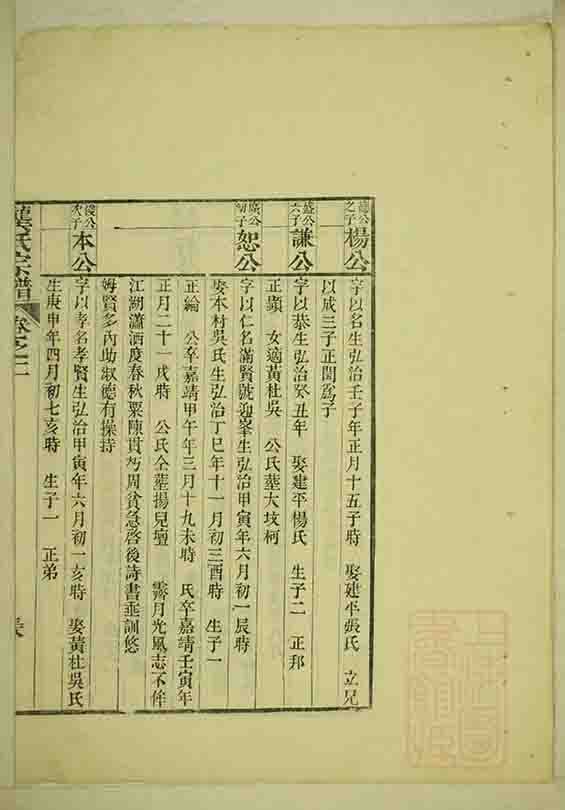 之子
楊公
字以名生弘治壬子年正月十五子時　娶建平張氏　立兄
以成三子正閏爲子
盛公六子
謙公
字以恭生弘治癸丑年　娶建平楊氏　生子二　正邦
正顯　女適黃杜吳　公氏塟大坟柯
恕公
字以仁名滿賢號迎峯生弘治甲寅年六月初一辰時
娶本村吳氏生弘治丁巳年十一月初三酉時　生子一
正綸　公卒嘉靖甲午年三月十九未時　氏卒嘉靖壬寅年
正月二十一戌時　公氏仝塟揚兒壇　霽月光風志不侔
江湖瀟洒度春秋粟陳貫朽周貧急啓後詩書垂訓悠
姆賢多內助淑德有操持
俊公次子
本公
字以孝名孝賢生弘治甲寅年六月初一亥時　娶黃杜吳氏
生庚申年四月初七亥時　生子一　正弟
氏宗譜
卷之二